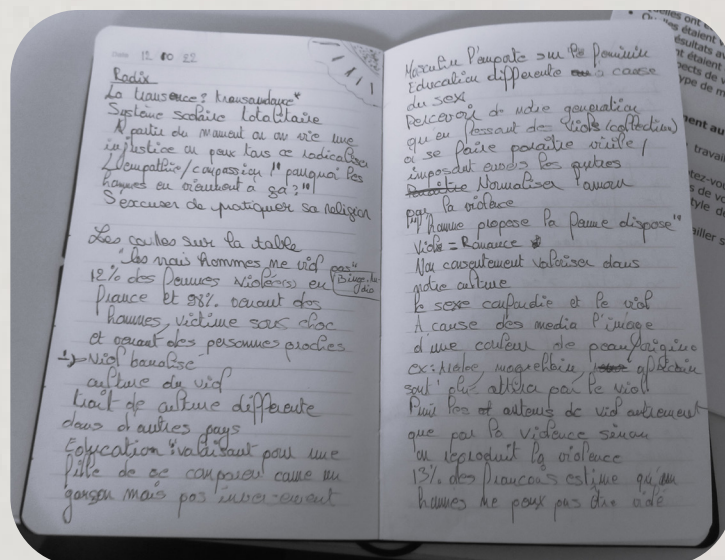 Date 12 10 22
Radix
La transence? transcendance*
Système scolaire totalitaire
A partir du moment ou on vie une
injustice on peux tous ce radicaliser
L'empathie/compassion /" pourquoi les
hommes en viennent à ça?"/
S'excuser de pratiquer sa religion
Les couilles sur la table
"les vrais hommes ne viol pas"
12% des femmes violé(e)s en
Binge Audio
france et 98% seront des
hommes, victime sous choc
et seront des personnes proches
→ Viol banalisé
culture du viol
trait de culture différente
dans d'autres pays
Education "valorisant pour une
fille de se comporer come un
garçon mais pas inversement
Masculin l'emporte sur le féminin
Education différente à cause
du sexe
Percevoir de notre generation
qu'en fessant des viols (collectives)
ai se faire paraître virile/
imposant envers les autres
Normaliser l'amour
par la violence
"l'homme propose la femme dispose"
Viole = Romance
Non consentement valoriser dans
notre culture
le sexe confondie et le viol
A cause des media l'image
d'une couleur de peau/origine
ex: Arabe, magrehbin, africain
sont plus attirer par le viol
Punir les auteurs de viol autrement
que par la violence sinon
on reproduit la violence
13% des francais estime qu'un
hommes ne peux pas être violé